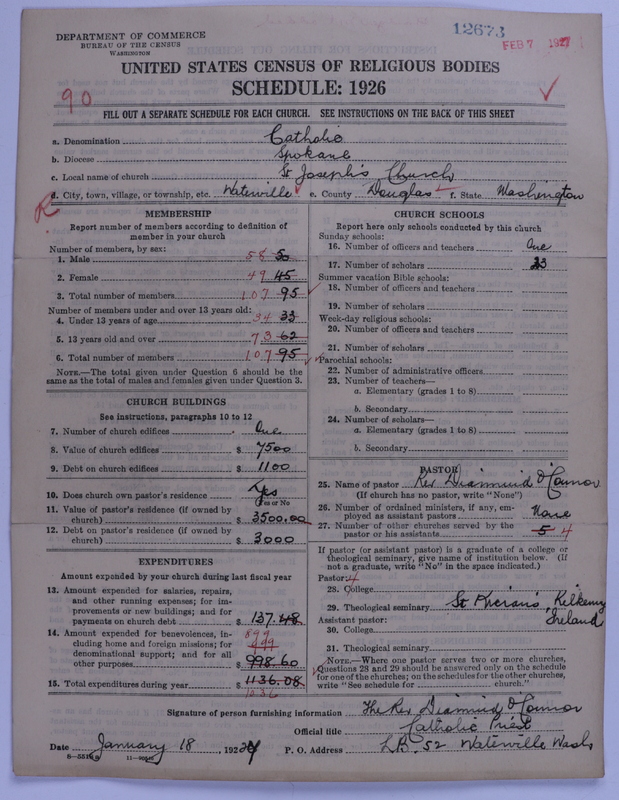 DEPARTMENT OF COMMERCE
BUREAU OF THE CENSUS
WASHINGTON
12673
FEB 7 1927
UNITED STATES CENSUS OF RELIGIOUS BODIES
SCHEDULE: 1926
90
FILL OUT A SEPARATE SCHEDULE FOR EACH CHURCH. SEE INSTRUCTIONS ON THE BACK OF THIS SHEET
a. Denomination Catholic
b. Diocese Spokane
c. Local name of church St Joseph's Church
d. City, town, village, or township, etc. Waterville e. County Douglas f. State Washington
R
MEMBERSHIP
Report number of members according to definition of
member in your church
Number of members, by sex:
1. Male 58 50
2. Female 49 45
3. Total number of members 107 95
Number of members under and over 13 years old:
4. Under 13 years of age 34 33
5. 13 years old and over 73 62
6. Total number of members 107 95
NOTE.—The total given under Question 6 should be
same as the total of males and females given under Question 3.
CHURCH BUILDINGS
See instructions, paragraphs 10 to 12
7. Number of church edifices One
8. Value of church edifices $ 7500
9. Debt on church edifices $ 1100
10. Does church own pastor's residence Yes
Yes or No
11. Value of pastor's residence (if owned by
church) $ 3500.00
12. Debt on pastor's residence (if owned by
church) $ 3000
EXPENDITURES
Amount expended by your church during last fiscal year
13. Amount expended for salaries, repairs,
and other running expenses; for im-
provements or new buildings; and for
payments on church debt $ 137.48
14. Amount expended for benevolences, in-
cluding home and foreign missions; for
denominational support; and for all
other purposes
899
999
$ 998.60
15. Total expenditures during year $ 1136.08
1036
CHURCH SCHOOLS
Report here only schools conducted by this church
Sunday schools:
16. Number of officers and teachers One
17. Number of scholars 33
Summer vacation Bible schools:
18. Number of officers and teachers
19. Number of scholars
Week-day religious schools:
20. Number of officers and teachers
21. Number of scholars
Parochial schools:
22. Number of administrative officers
23. Number of teachers—
a. Elementary (grades 1 to 8)
b. Secondary
24. Number of scholars—
a. Elementary (grades 1 to 8)
b. Secondary
PASTOR
25. Name of pastor Rev Diarmuid O'Connor
(If church has no pastor, write "None")
26. Number of ordained ministers, if any, em-
ployed as assistant pastors None
27. Number of other churches served by the
pastor or his assistants 5 4
If pastor (or assistant pastor) is a graduate of a college or
theological seminary, give name of institution below. (If
not a graduate, write "No" in the space indicated.)
Pastor:
28. College
29. Theological seminary St Kieran's, Kilkenny
Ireland
Assistant pastor:
30. College
31. Theological seminary
NOTE.—Where one pastor serves two or more churches,
Questions 28 and 29 should be answered only on the schedule
for one of the churches; on the schedules for the other churches,
write "See schedule for church."
Signature of person furnishing information The Rev Diarmuid O'Connor
Official title Catholic Priest
Date January 18, 192 P. O. Address L.B. 52 Waterville Wash